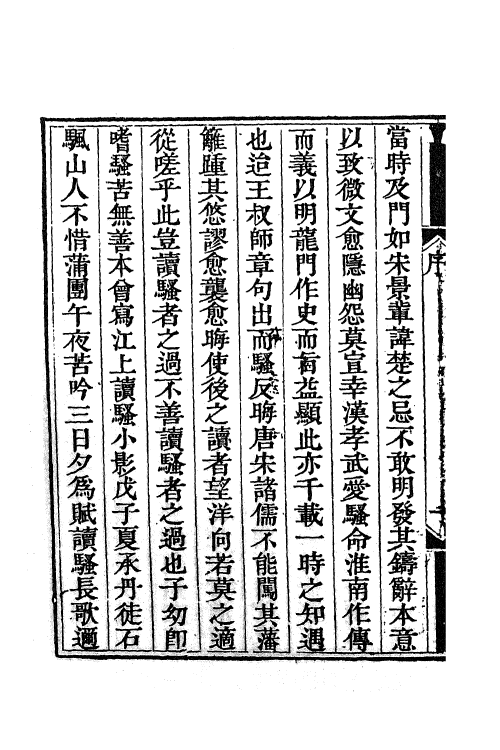 序
當時及門如宋景輩諱楚之忌不敢明發其鑄辭本意
以致微文愈隱幽怨莫宣幸漢孝武愛騷命淮南作傳
而義以明龍門作史而旨益顯此亦千載一時之知遇
也迨王叔師章句出而騷反晦唐宋諸儒不能闖其藩
籬踵其悠謬愈襲愈晦使後之讀者望洋向若莫之適
從嗟乎此豈讀騷者之過不善讀騷者之過也予幼卽
嗜騷苦無善本曾寫江上讀騷小影戊子夏承丹徒石
颿山人不惜蒲團午夜苦吟三日夕為賦讀騷長歌適